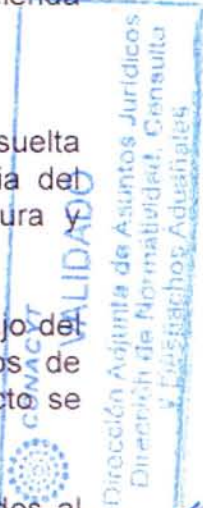 suelta
ia del
ura y
jo del
os de
cto se
dos al
CONACYT
VALIDADO
Dirección Adjunta de Asuntos Jurídicos
Dirección de Normatividad, Consulta
y Despachos Aduanales